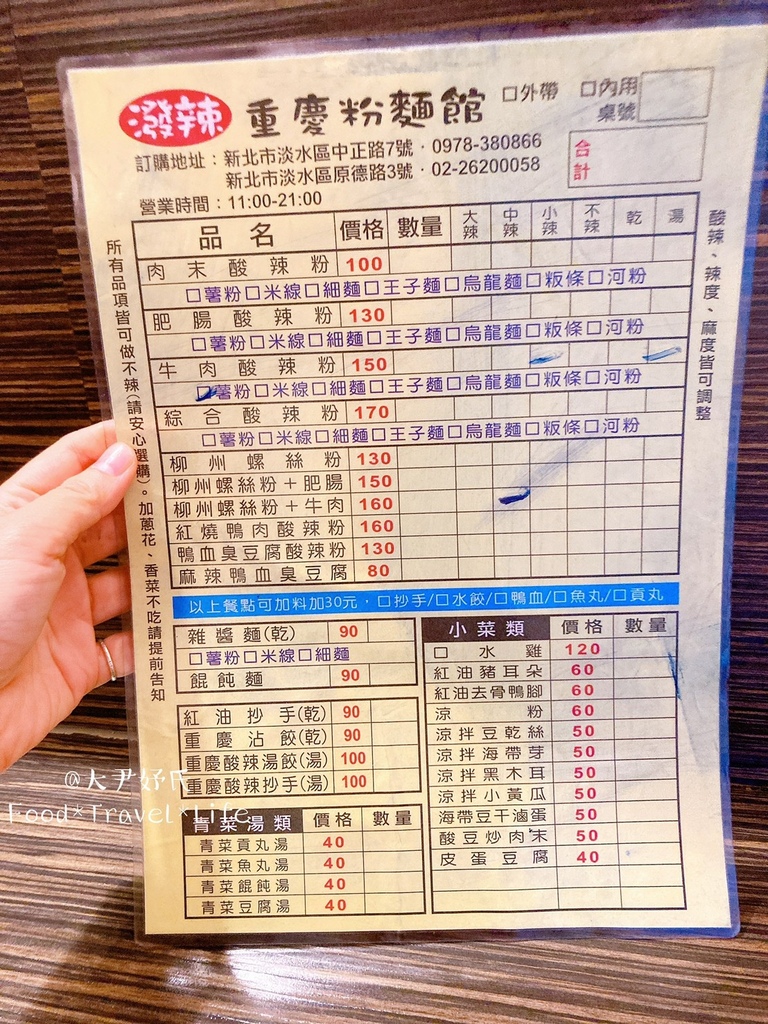 潑辣 重慶粉麵館 □外帶 □內用
桌號
訂購地址：新北市淡水區中正路7號‧0978-380866
新北市淡水區原德路3號‧02-26200058
合計
營業時間：11:00-21:00
品名 價格 數量 大辣 中辣 小辣 不辣 乾 湯
肉末酸辣粉 100
□薯粉□米線□細麵□王子麵□烏龍麵□粄條□河粉
肥腸酸辣粉 130
□薯粉□米線□細麵□王子麵□烏龍麵□粄條□河粉
牛肉酸辣粉 150
□薯粉□米線□細麵□王子麵□烏龍麵□粄條□河粉
綜合酸辣粉 170
□薯粉□米線□細麵□王子麵□烏龍麵□粄條□河粉
柳州螺絲粉 130
柳州螺絲粉＋肥腸 150
柳州螺絲粉＋牛肉 160
紅燒鴨肉酸辣粉 160
鴨血臭豆腐酸辣粉 130
麻辣鴨血臭豆腐 80
所有品項皆可做不辣(請安心選購)。加蔥花、香菜不吃請提前告知
酸辣、辣度、麻度皆可調整
以上餐點可加料加30元‧□抄手/□水餃/□鴨血/□魚丸/□貢丸
雜醬麵(乾) 90
□薯粉□米線□細麵
餛飩麵 90
紅油抄手(乾) 90
重慶沾餃(乾) 90
重慶酸辣湯餃(湯) 100
重慶酸辣抄手(湯) 100
青菜湯類 價格 數量
青菜貢丸湯 40
青菜魚丸湯 40
青菜餛飩湯 40
青菜豆腐湯 40
小菜類 價格 數量
口水雞 120
紅油豬耳朵 60
紅油去骨鴨腳 60
涼粉 60
涼拌豆乾絲 50
涼拌海帶芽 50
涼拌黑木耳 50
涼拌小黃瓜 50
海帶豆干滷蛋 50
酸豆炒肉末 50
皮蛋豆腐 40
@大尹妤氏
Food*Travel*Life